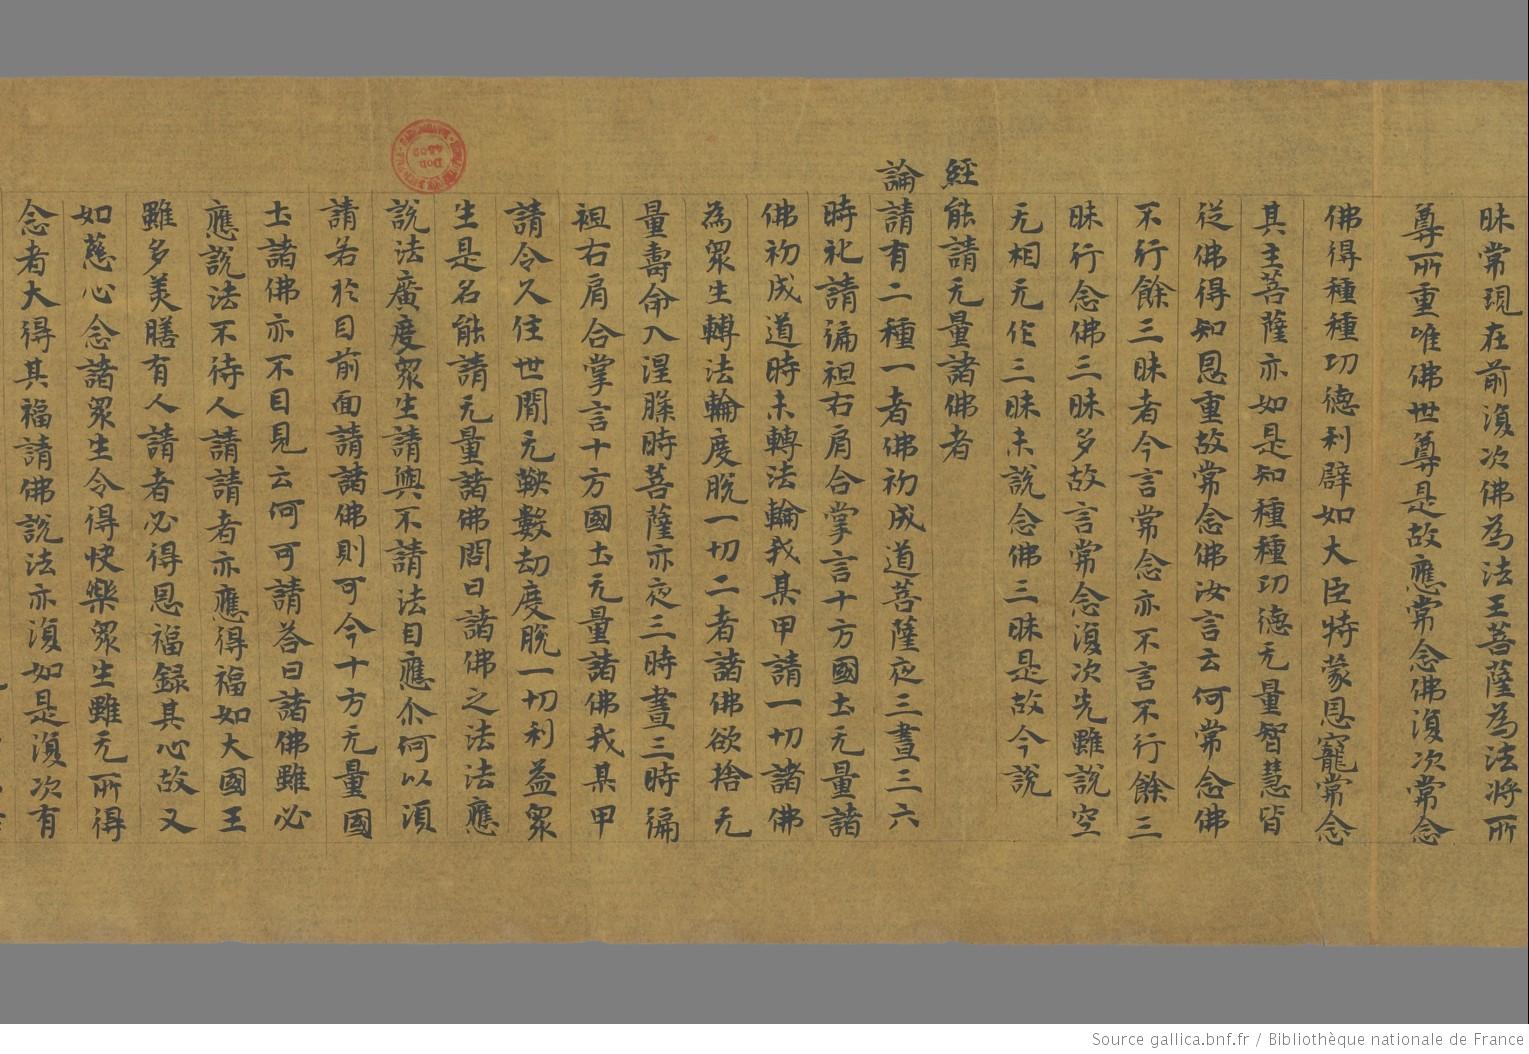 昧常現在前湏次佛為法王菩薩為法將所
尊所重唯佛世尊是故應常念佛湏次常念
佛得種種功德利辟如大臣特蒙恩寵常念
其主菩薩亦如是知種種功德无量智慧皆
從佛得知恩重故常念佛汝言云何常念佛
不行餘三昧者今言常念亦不言不行餘三
昧行念佛三昧多故言常念湏次先雖說空
无相无作三昧未說念佛三昧是故今說
經能請无量諸佛者
論請有二種一者佛初成道菩薩夜三晝三六
時礼請徧袒右肩合掌言十方國土无量諸
佛初成道時未轉法輪我某甲請一切諸佛
為衆生轉法輪度脫一切二者諸佛欲捨无
量壽命入涅槃時菩薩亦夜三時晝三時徧
袒右肩合掌言十方國土无量諸佛我某甲
請令久住世間无鞅數劫度脫一切利益衆
生是名能請无量諸佛問曰諸佛之法法應
說法廣度衆生請與不請法自應尒何以湏
請若於目前面請諸佛則可今十方无量國
土諸佛亦不目見云何可請荅曰諸佛雖必
應說法不待人請請者亦應得福如大國王
雖多美膳有人請者必得恩福録其心故又
如慈心念諸衆生令得快樂衆生雖无所得
念者大得其福請佛說法亦湏如是湏次有
Source gallica.bnf.fr / Bibliothèque nationale de France